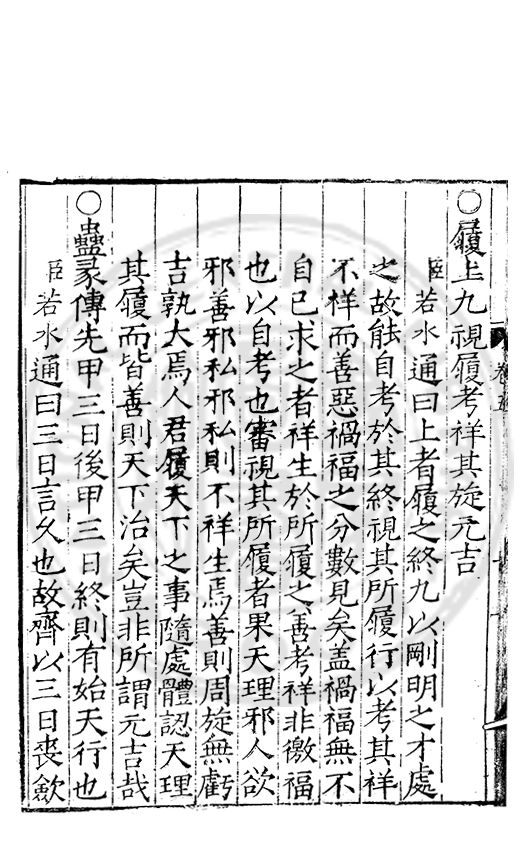 ○履上九視履考祥其旋元吉
臣若水通曰上者履之終九以剛明之才處
之故能自考於其終視其所履行以考其祥
不祥而善惡禍福之分數見矣盖禍福無不
自已求之者祥生於所履之善考祥非徼福
也以自考也審視其所履者果天理邪人欲
邪善邪私邪私則不祥生焉善則周旋無虧
吉孰大焉人君履天下之事隨處體認天理
其履而皆善則天下治矣豈非所謂元吉哉
○蠱彖傳先甲三日後甲三日終則有始天行也
臣若水通曰三日言久也故齊以三日喪斂